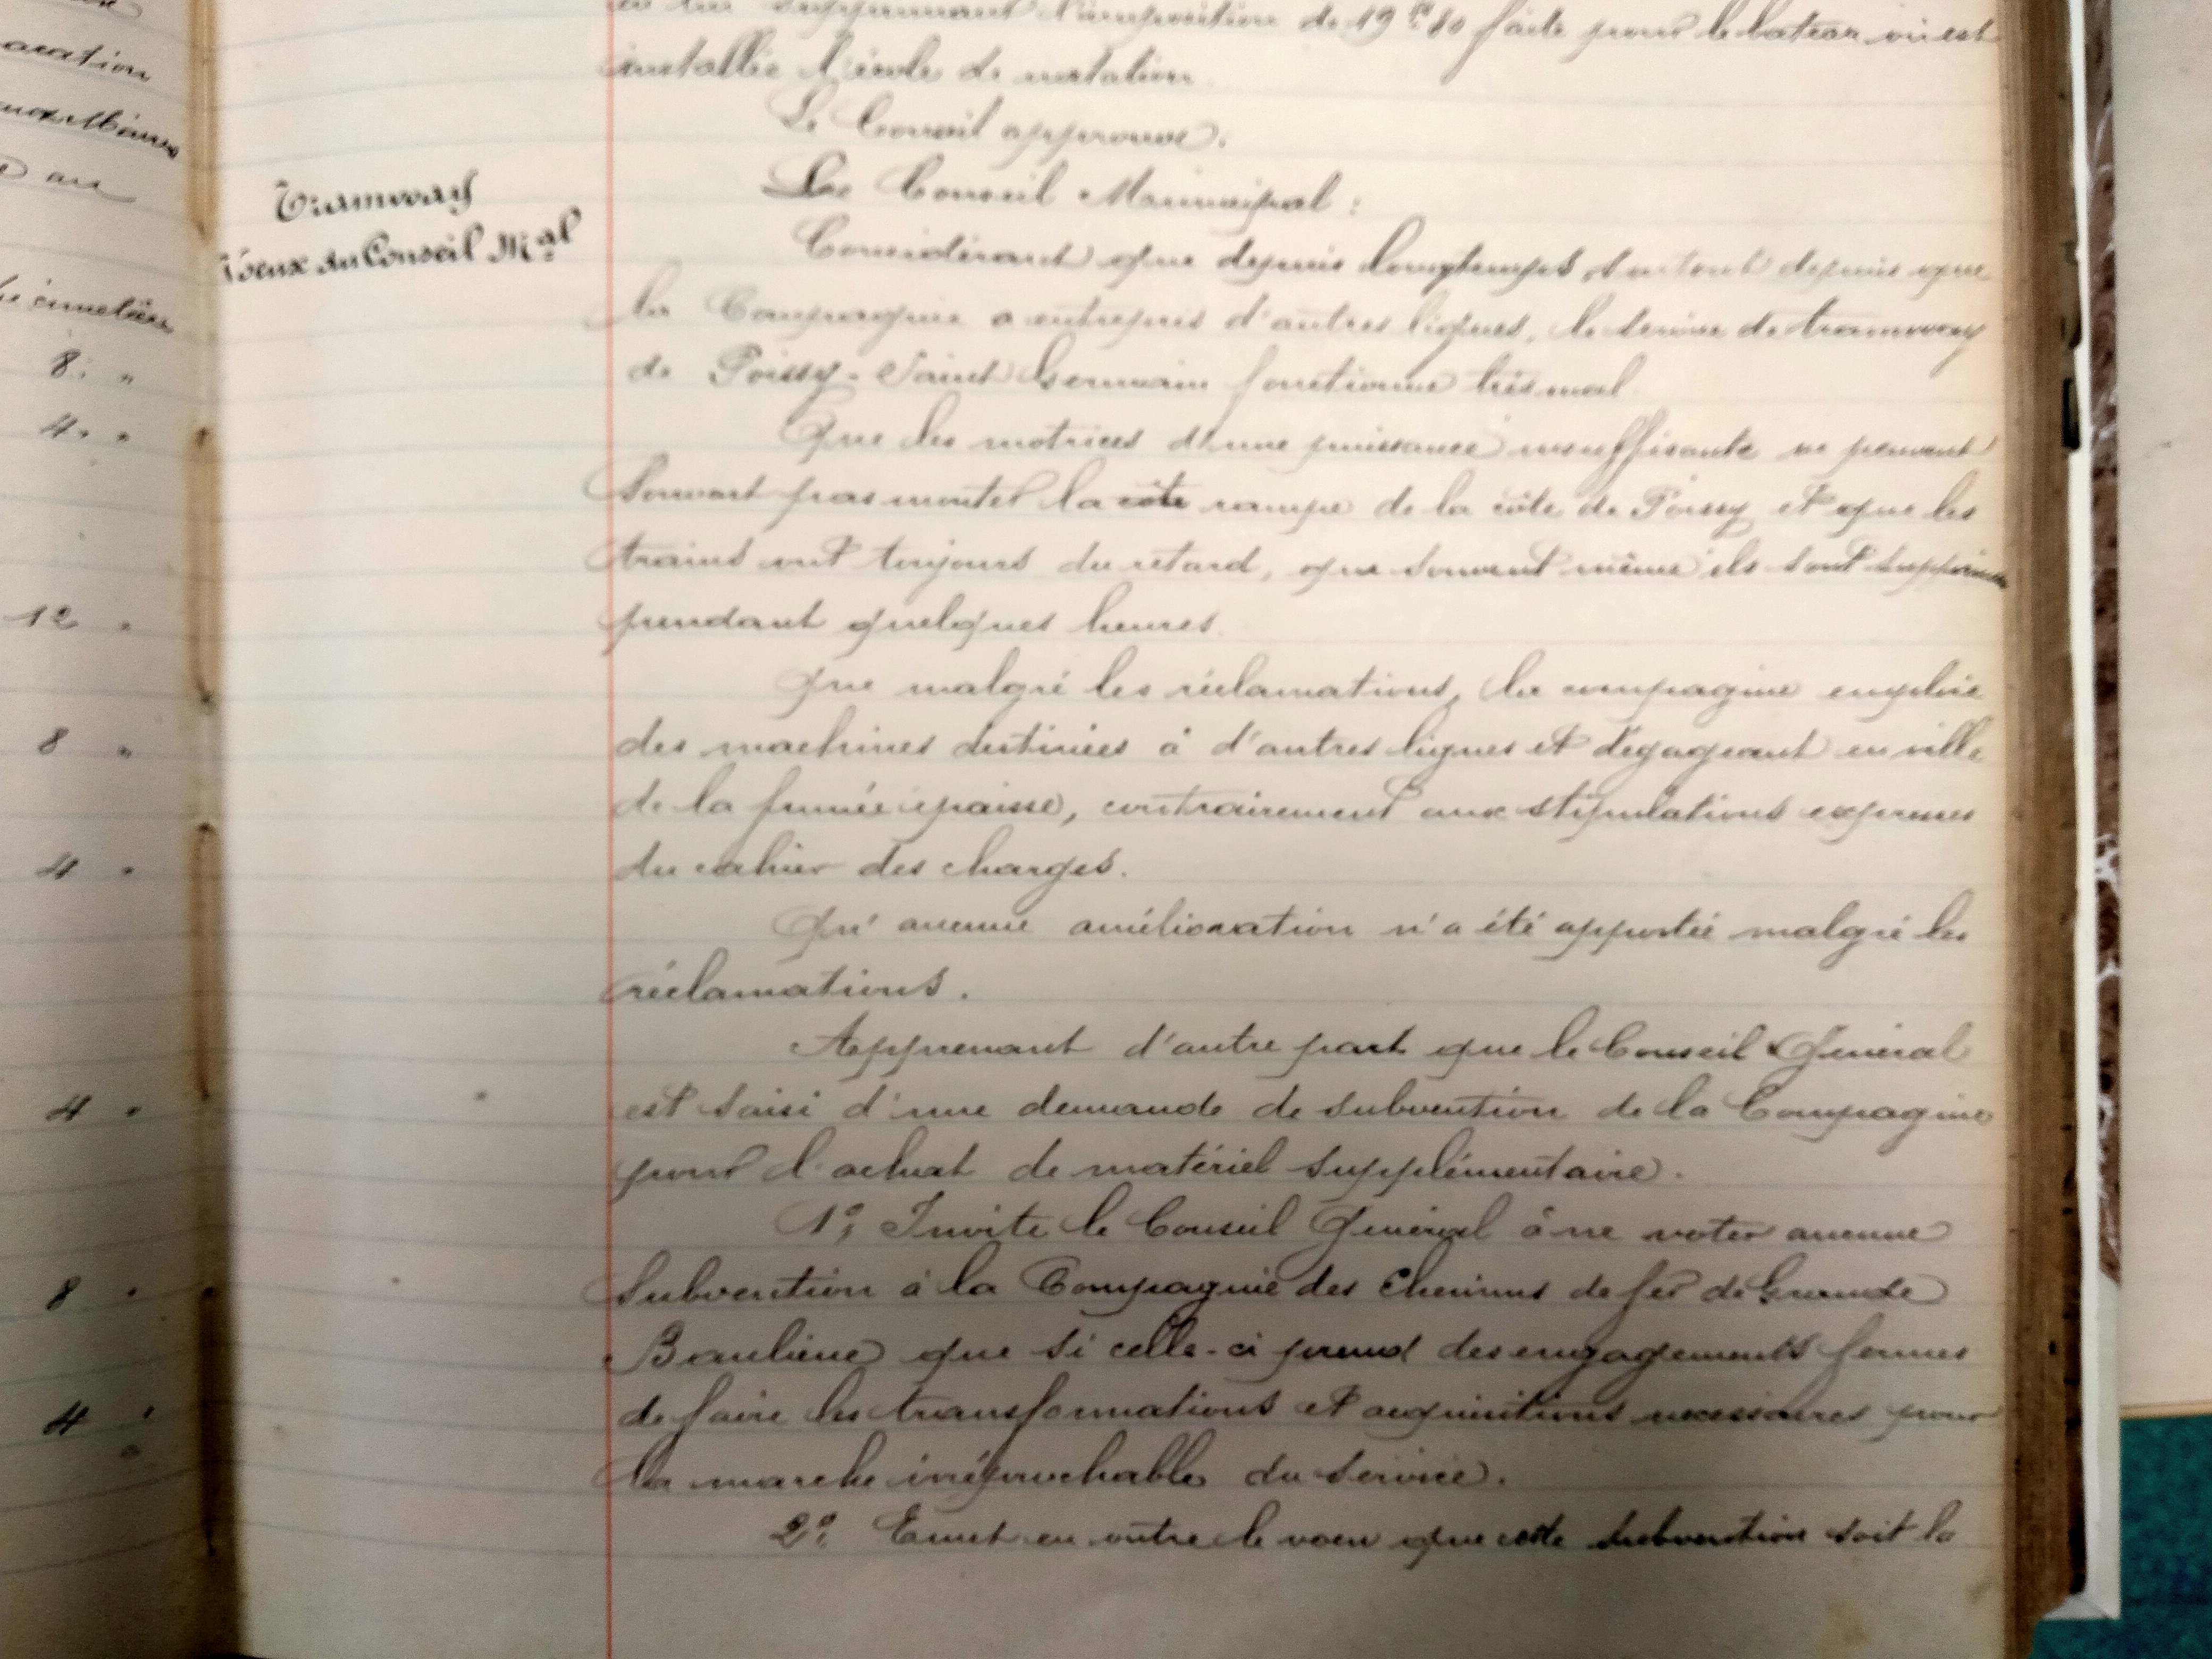 aration
au
cimetière
8. "
4. "
12 "
8 "
4 "
4 "
8 "
4 "
Tramway
Voeux du Conseil M.al
supprimant l'imposition de 19 f 80 faite pour le bateau où est
installée l'école de natation
Le Conseil approuve.
Le Conseil Municipal :
Considérant que depuis longtemps, surtout depuis que
la Compagnie a entrepris d'autres lignes, le service de tramway
de Poissy-Saint Germain fonctionne très mal
Que les motrices d'une puissance insuffisante ne peuvent
souvent pas monter la côte rampe de la côte de Poissy et que les
trains ont toujours du retard, que souvent même ils sont supprimés
pendant quelques heures.
Que malgré les réclamations, la compagnie emploie
des machines destinées à d'autres lignes et dégageant en ville
de la fumée épaisse, contrairement aux stipulations expresses
du cahier des charges.
Qu'aucune amélioration n'a été apportée malgré les
réclamations.
Apprenant d'autre part que le Conseil Général
est saisi d'une demande de subvention de la Compagnie
pour l'achat de matériel supplémentaire.
1º, Invite le Conseil Général à ne voter aucune
subvention à la Compagnie des Chemins de fer de Grande
Banlieue que si celle-ci prend des engagements fermes
de faire les transformations et acquisitions necessaires pour
la marche irréprochable du service.
2º, Emet en outre le voeu que cette subvention soit la